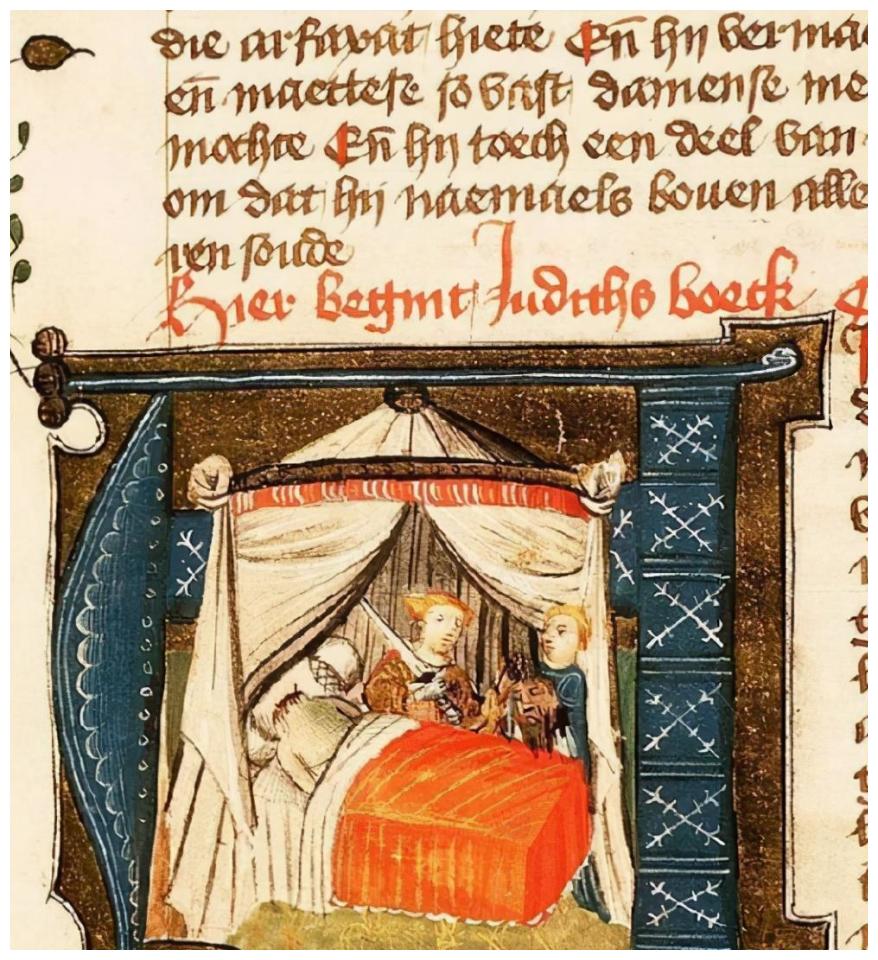 die arfaxat hiete En̄ hij vermae
en̄ maectese so vast damense me
mochte En̄ hij toech een deel van
om dat hij naemaels bouen alle
ren soude
Hier begint Judiths boeck